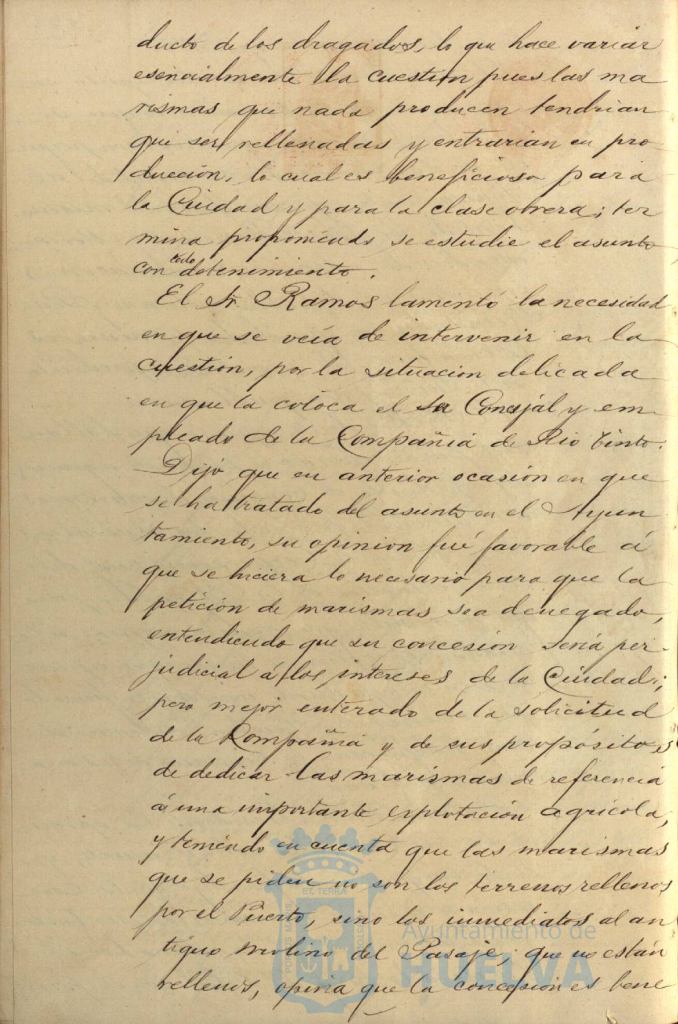 ducto de los dragados, lo que hace variar
esencialmente la cuestion pues las ma
rismas que nada producen tendrian
que ser rellenadas y entrarian en pro-
duccion, lo cual es beneficioso para
la Ciudad y para la clase obrera; ter
mina proponiendo se estudie el asunto
todo
con detenimiento.
El Sr. Ramos lamentó la necesidad
en que se veía de intervenir en la
cuestión, por la situacion delicada
en que la coloca el ser Concejal y em-
pleado de la Compañia de Rio Tinto.
Dijo que en anterior ocasión en que
se ha tratado del asunto en el Ayun
tamiento, su opinion fué favorable á
que se hiciera lo necesario para que la
petición de marismas sea denegado,
entendiendo que su concesión seria per-
judicial á los intereses de la Ciudad;
pero mejor enterado de la solicitud
de la Compañia y de sus propósitos
de dedicar las marismas de referencia
á una importante explotación agricola,
y teniendo en cuenta que las marismas
que se piden no son los terrenos rellenos
por el Puerto, sino los inmediatos al an-
tiguo molino del Pasaje, que no están
rellenos, opina que la concesion es bene
Ayuntamiento de
HUELVA